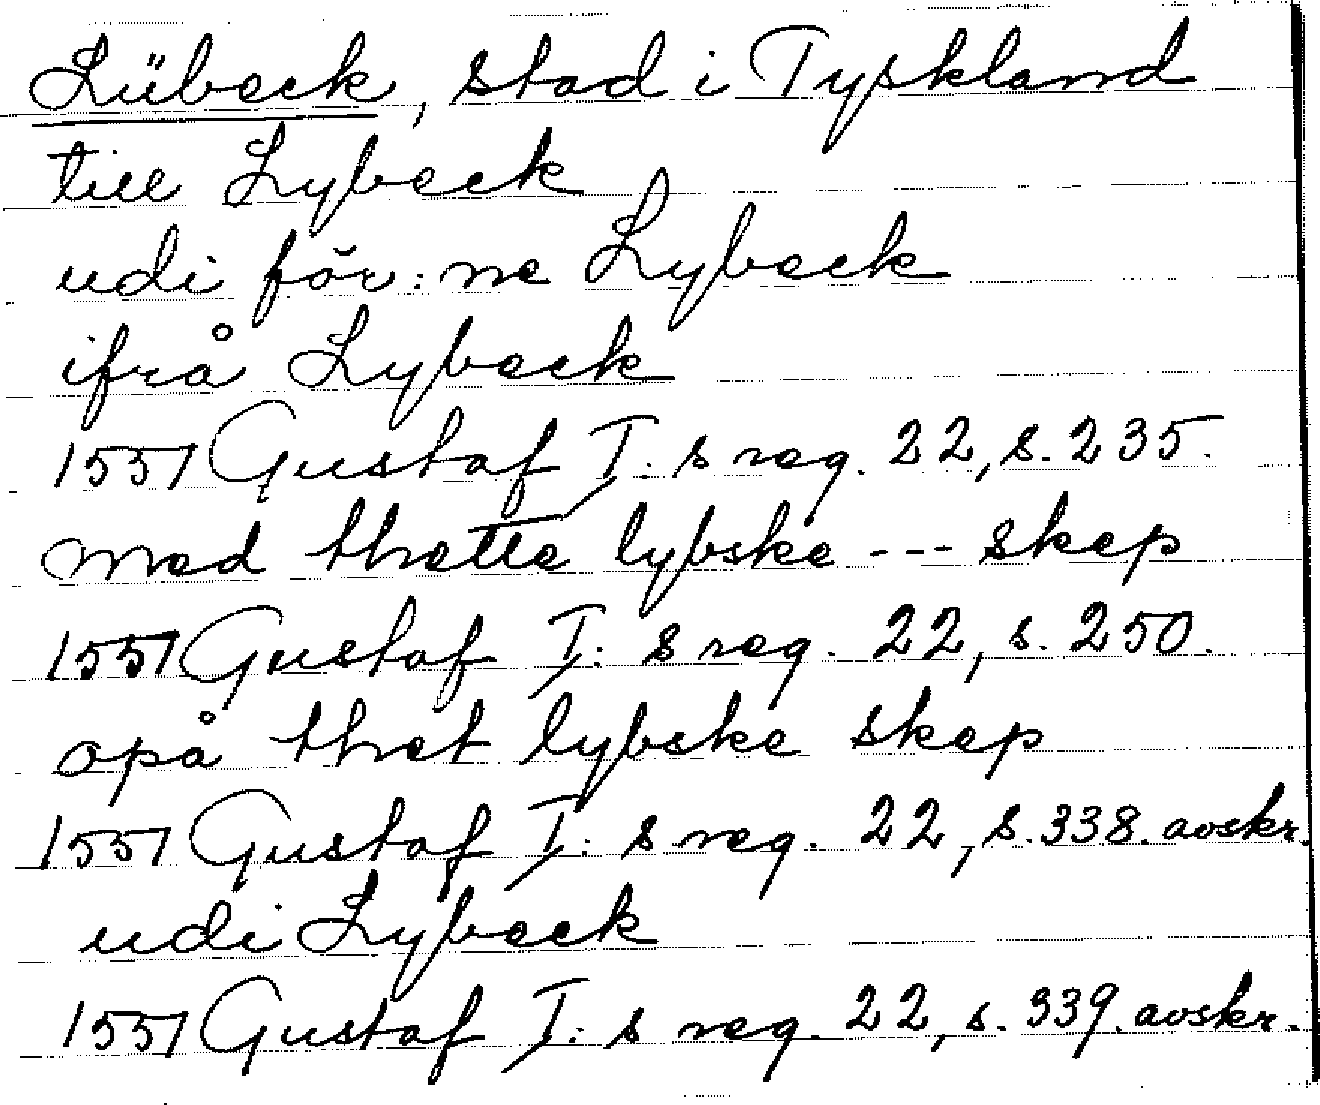 Lübeck, stad i Tyskland
till Lybeck
udi för:ne Lybeck
ifrå Lybeck
1551 Gustaf I:s reg. 22, s. 235.
med thette lybske --- skep
1551 Gustaf I:s reg. 22, s. 250.
opå thet lybske skep
1551 Gustaf I:s reg. 22, s. 338. avskr.
udi Lybeck
1551 Gustaf I:s reg. 22, s. 339. avskr.